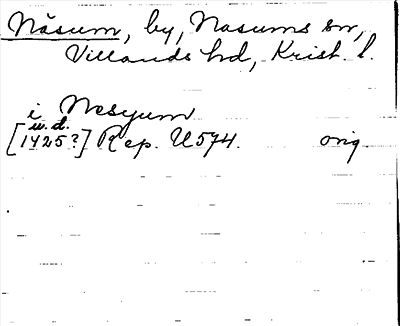 Näsum, by, Nasums sn,
Villands hd, Krist. l.
i Nesyum
u.d.
[1425?] Rep. U574. orig.